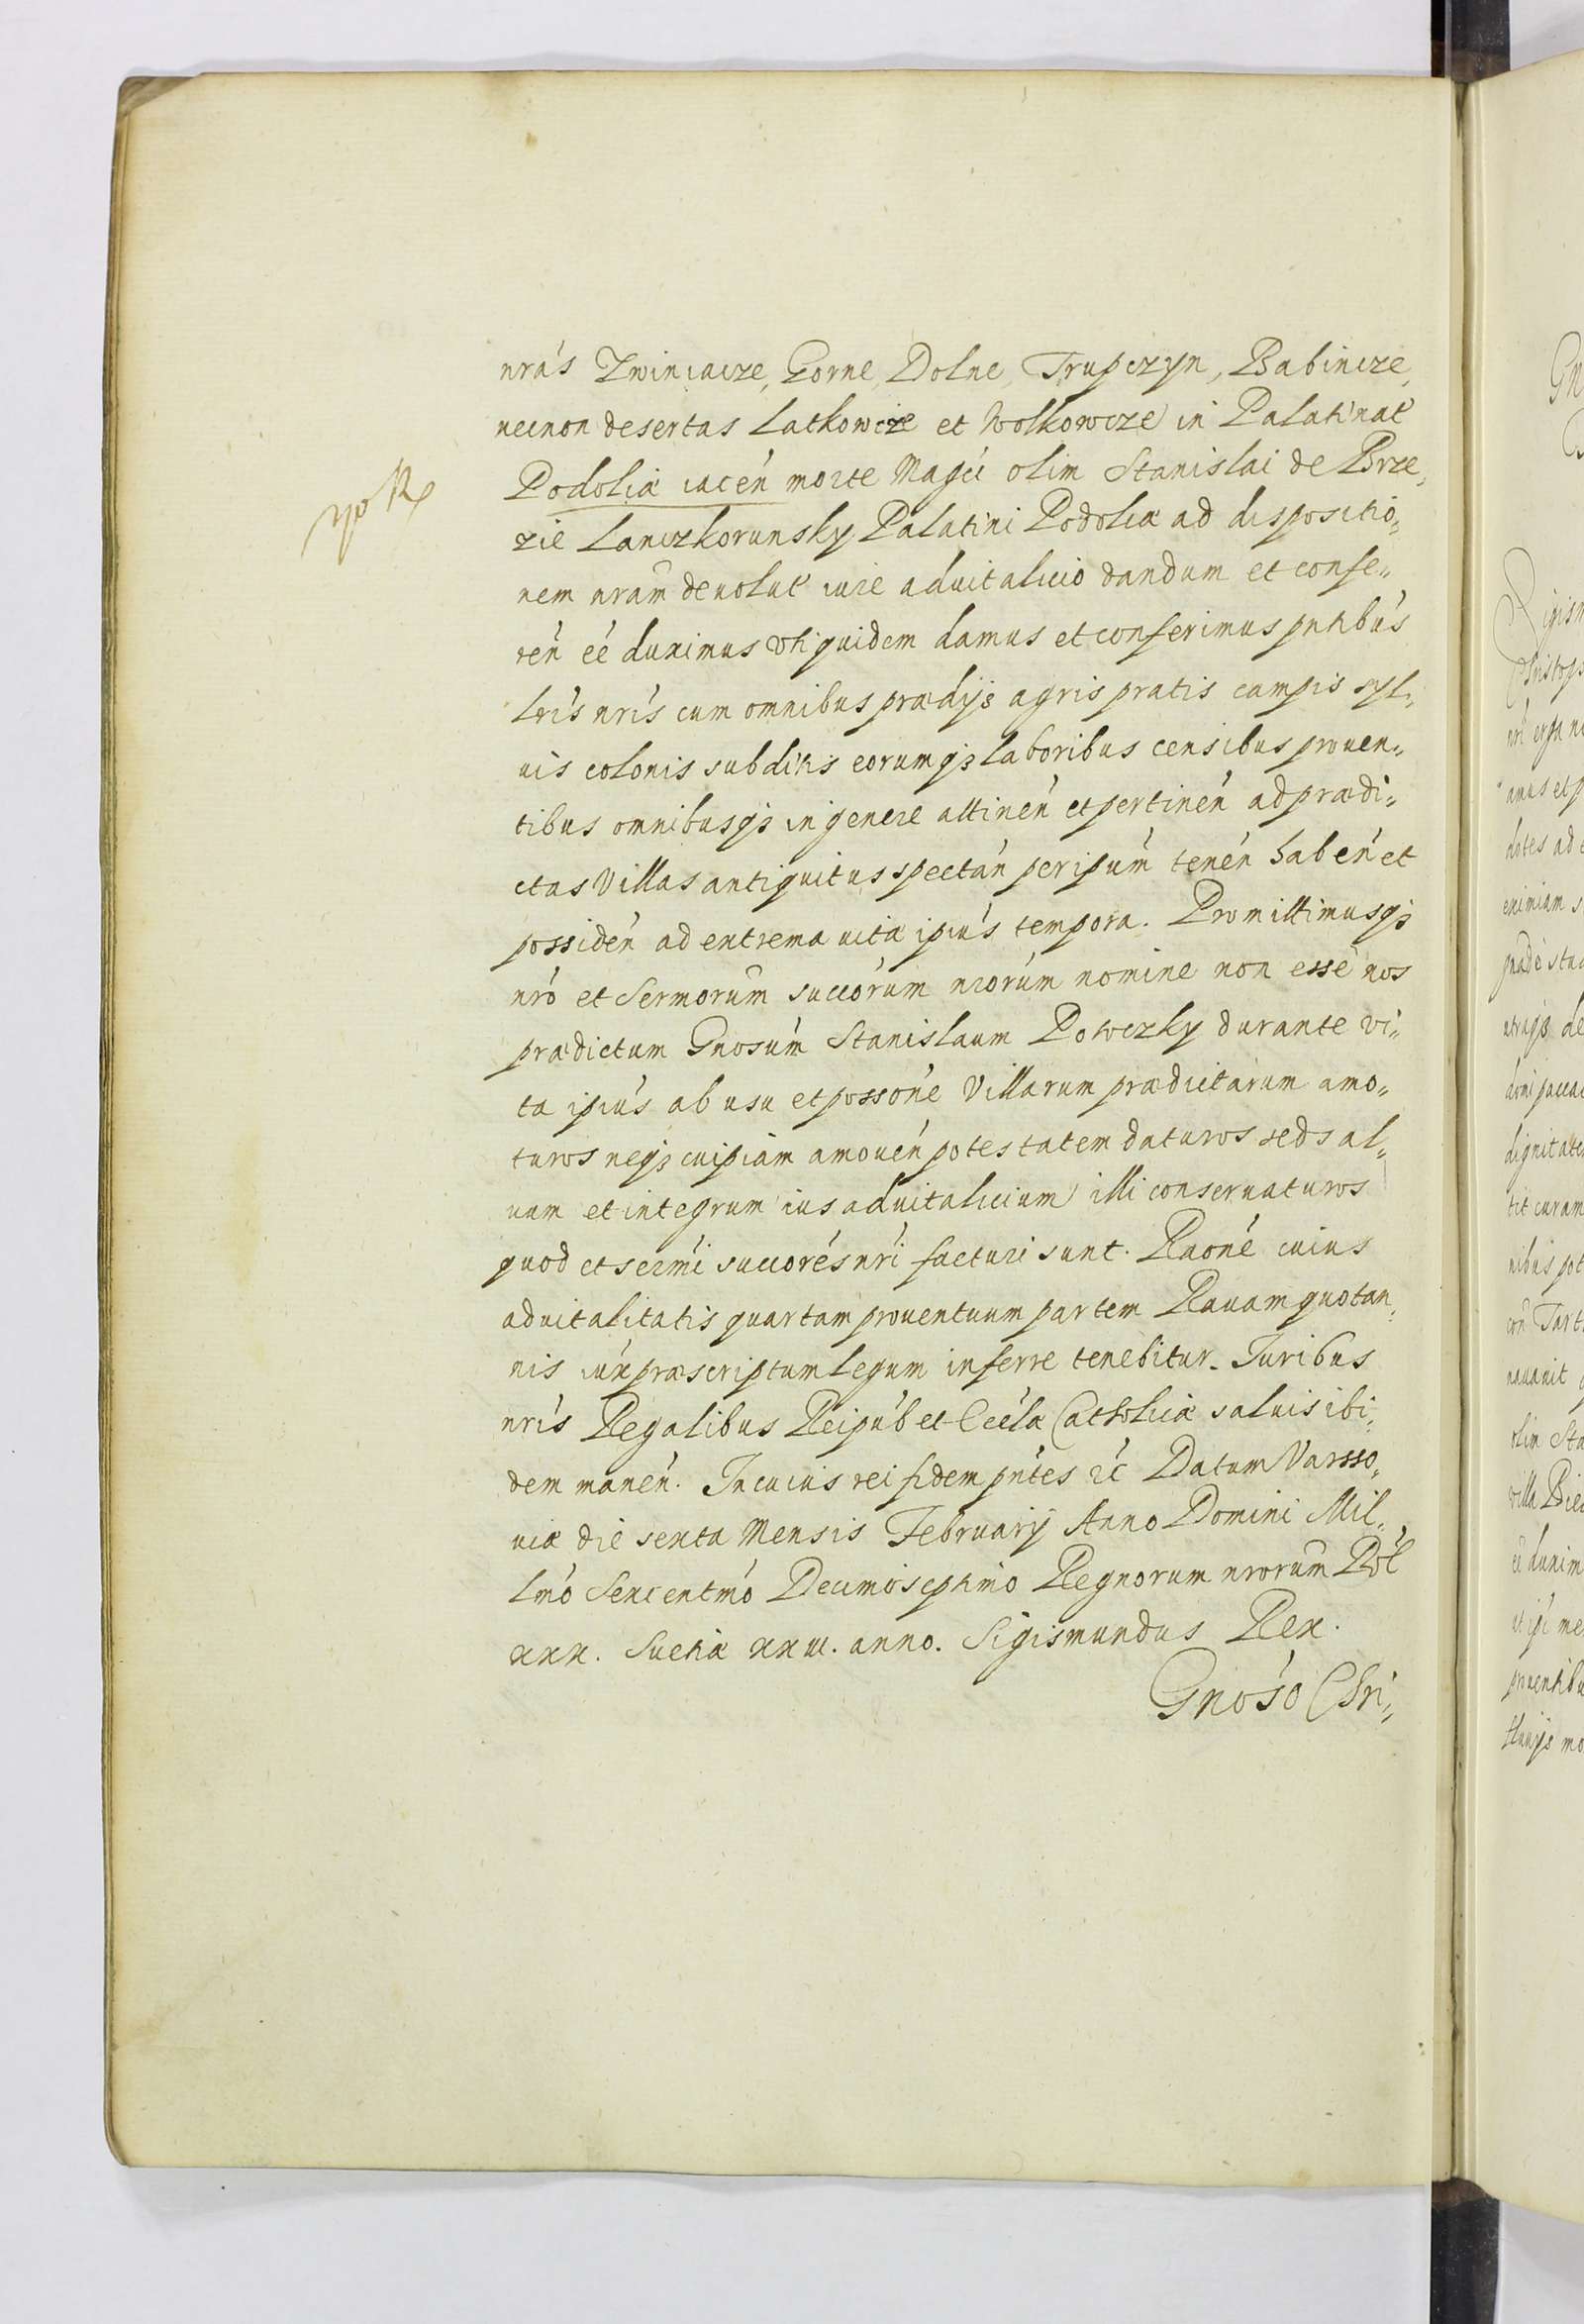 nrás Zwiniacze, Gorne, Dolne, Trupczyn, Babincze,
necnon desertas Latkowcze et Wolkowcze in Palatinat
Podoliæ iacén morte Magci olim Stanislai de Brze„
zie Lanczkorunsky Palatini Podoliæ ad dispositio„
nem nram deuolut iure aduitalicio dandum et confe„
rén éé duximus vti quidem damus et conferimus pntibús
Lris nris cum omnibus prædijs agris pratis campis syl„
uis colonis subditis eorumqȝ laboribus censibus prouen„
tibus omnibusqȝ in genere attinén et pertinén ad prædi„
ctas Villas antiquitus spectán per ipúm tenén habén et
possidén ad extrema uitæ ipiús tempora. Promittimusqȝ
nro et Sermorum succórum nrorúm nomine non esse nos
prædictum Gnosúm Stanislaum Powczky durante vi„
ta ipiús ab usu et possóne Villarum prædictarum amo„
turos neqȝ cuipiam amouén potestatem daturos sed sal„
uum et integrum ius aduitalicium illi conseruaturos
quod et sermi succorés nri facturi sunt. Raoné cuius
aduitalitatis quartam prouentuum partem Rauam quotan„
nis iux præscriptum legum inferre tenebitur. Iuribus
nris Regalibus Reipúb et Eccla Catholicæ saluis ibi„
dem manén. In cuius rei fidem pntes ec Datum Varsso„
uiæ die sexta Mensis February Anno Domini Mil„
lmo Sexcentmo Decimoseptimo Regnorum nrorum Pol
xxx. Suetiæ xxiii. anno. Sigismundus Rex.
Gnoso Chri„